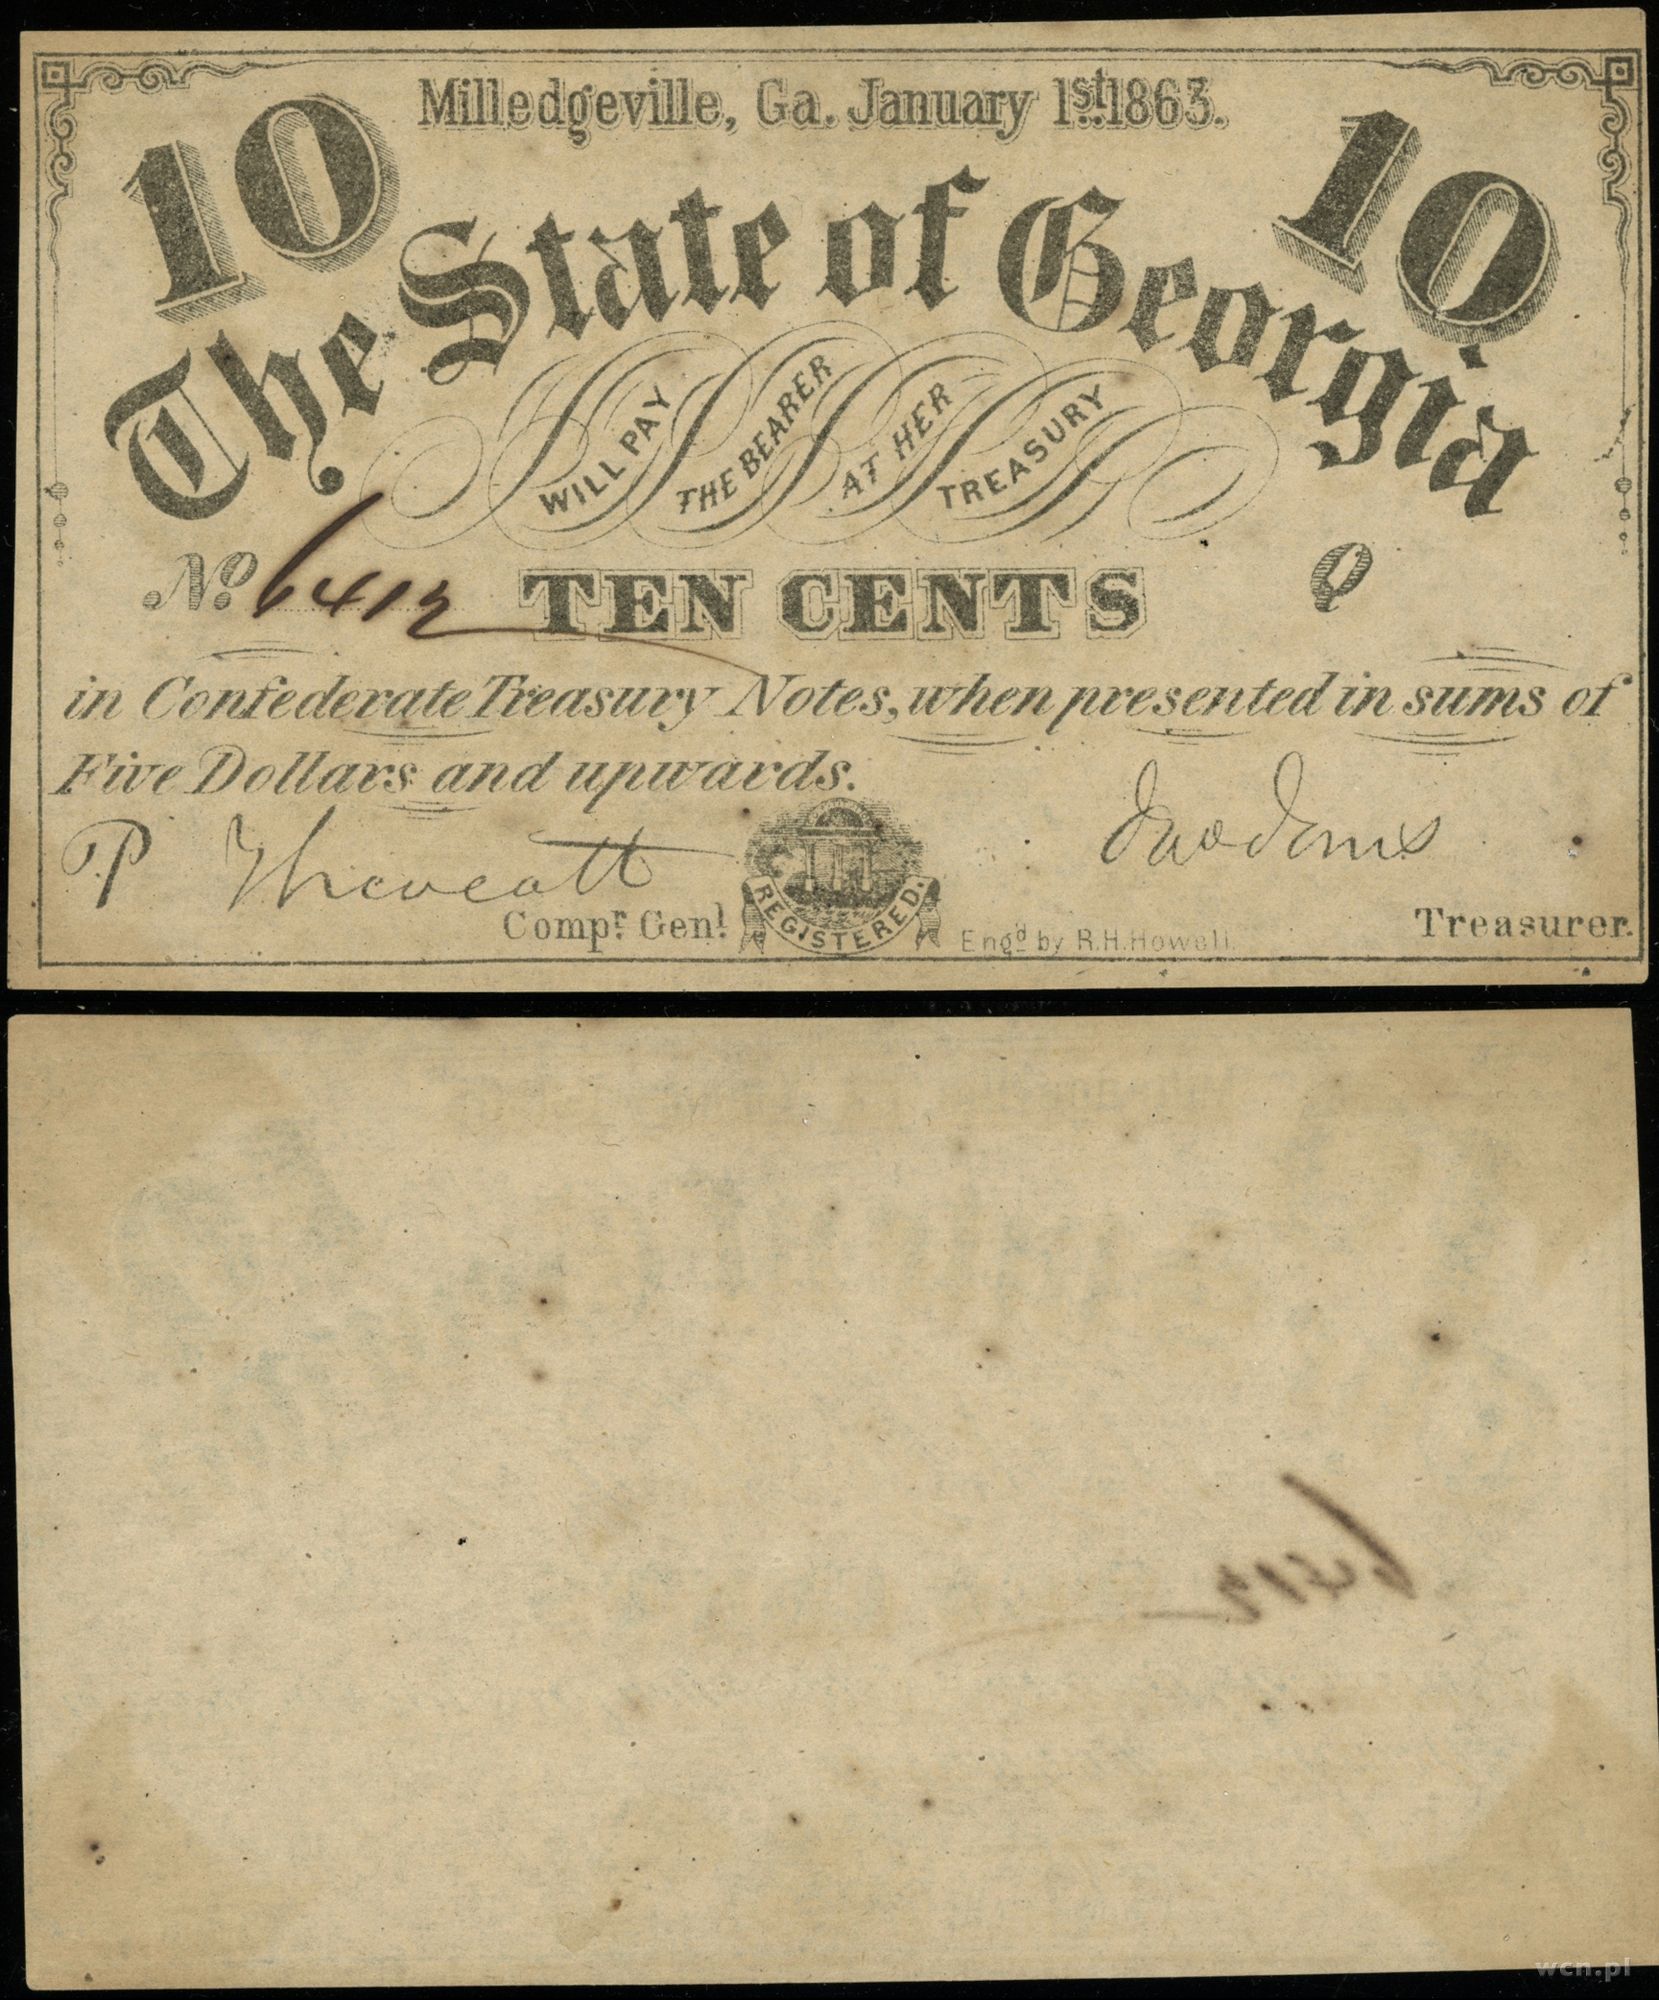 Milledgeville, Ga. January 1st 1863.
10 10
The State of Georgia
WILL PAY THE BEARER AT HER TREASURY
No. 6412 TEN CENTS Q
in Confederate Treasury Notes, when presented in sums of
Five Dollars and upwards.
P Thweatt Jno Jones
Compr. Genl. REGISTERED. Engd by R.H. Howell. Treasurer.
6412
wcn.pl